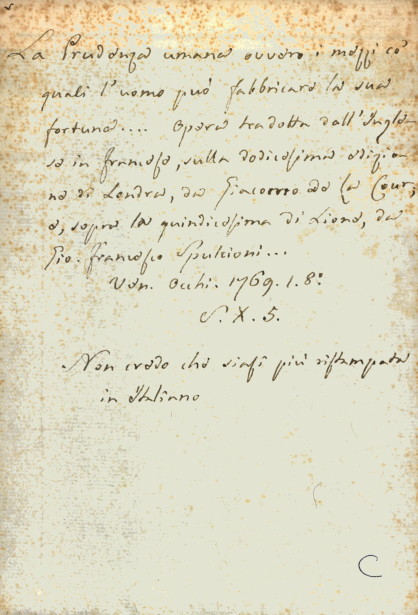 La Prudenza umana ovvero i mezzi co'
quali l'uomo può fabbricare la sua
fortuna.... opera tradotta dall'Ingle-
se in francese, sulla dodicesima edizio-
ne di Londra, da Giacomo de la Cour,
e, sopra la quindicesima di Lione, da
Gio. francesco Spulcioni...
Ven. Occhi. 1769. 1. 8º
S. X. 5.
Non credo che siasi più ristampata
in Italiano
C